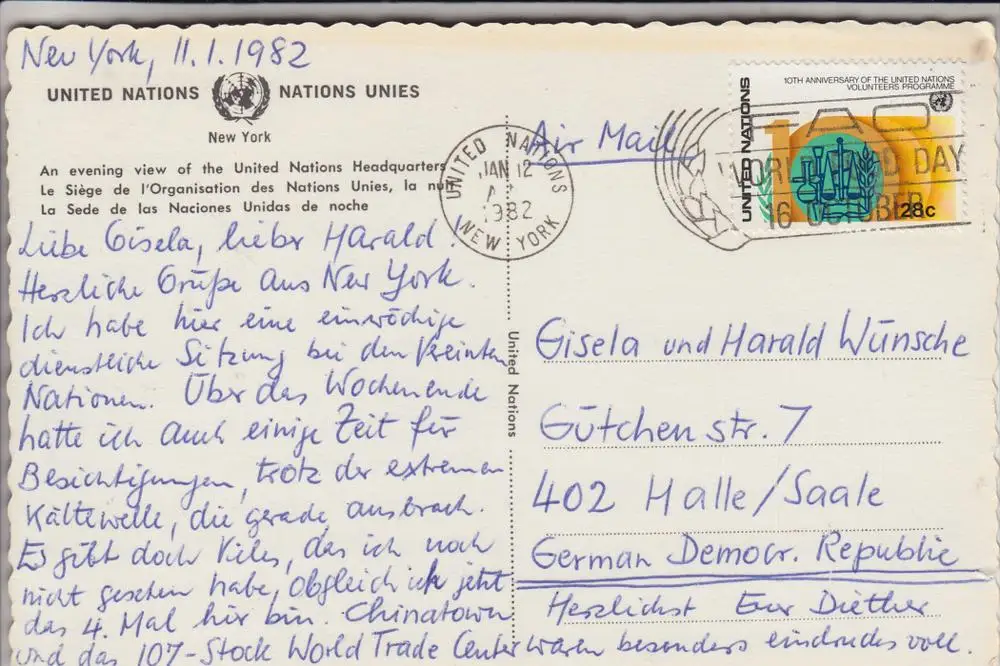 New York, 11.1.1982
UNITED NATIONS NATIONS UNIES
New York
An evening view of the United Nations Headquarters
Le Siège de l'Organisation des Nations Unies, la nuit
La Sede de las Naciones Unidas de noche
Liebe Gisela, lieber Harald!
Herzliche Grüße aus New York.
Ich habe hier eine einwöchige
dienstliche Sitzung bei den Vereinten
Nationen. Über das Wochenende
hatte ich auch einige Zeit für
Besichtigungen, trotz der extremen
Kältewelle, die gerade ausbrach.
Es gibt doch Vieles, das ich noch
nicht gesehen habe, obgleich ich jetzt
das 4. Mal hier bin. Chinatown
und das 107-Stock World Trade Center waren besonders eindrucksvoll.
Herzlichst Euer Diether
United Nations
Air Mail
UNITED NATIONS
JAN 12
1982
NEW YORK
FAO
WORLD FOOD DAY
16 OCTOBER
UNITED NATIONS
10TH ANNIVERSARY OF THE UNITED NATIONS
VOLUNTEERS PROGRAMME
10
28c
Gisela und Harald Wünsche
Gütchenstr. 7
402 Halle/Saale
German Democr. Republic